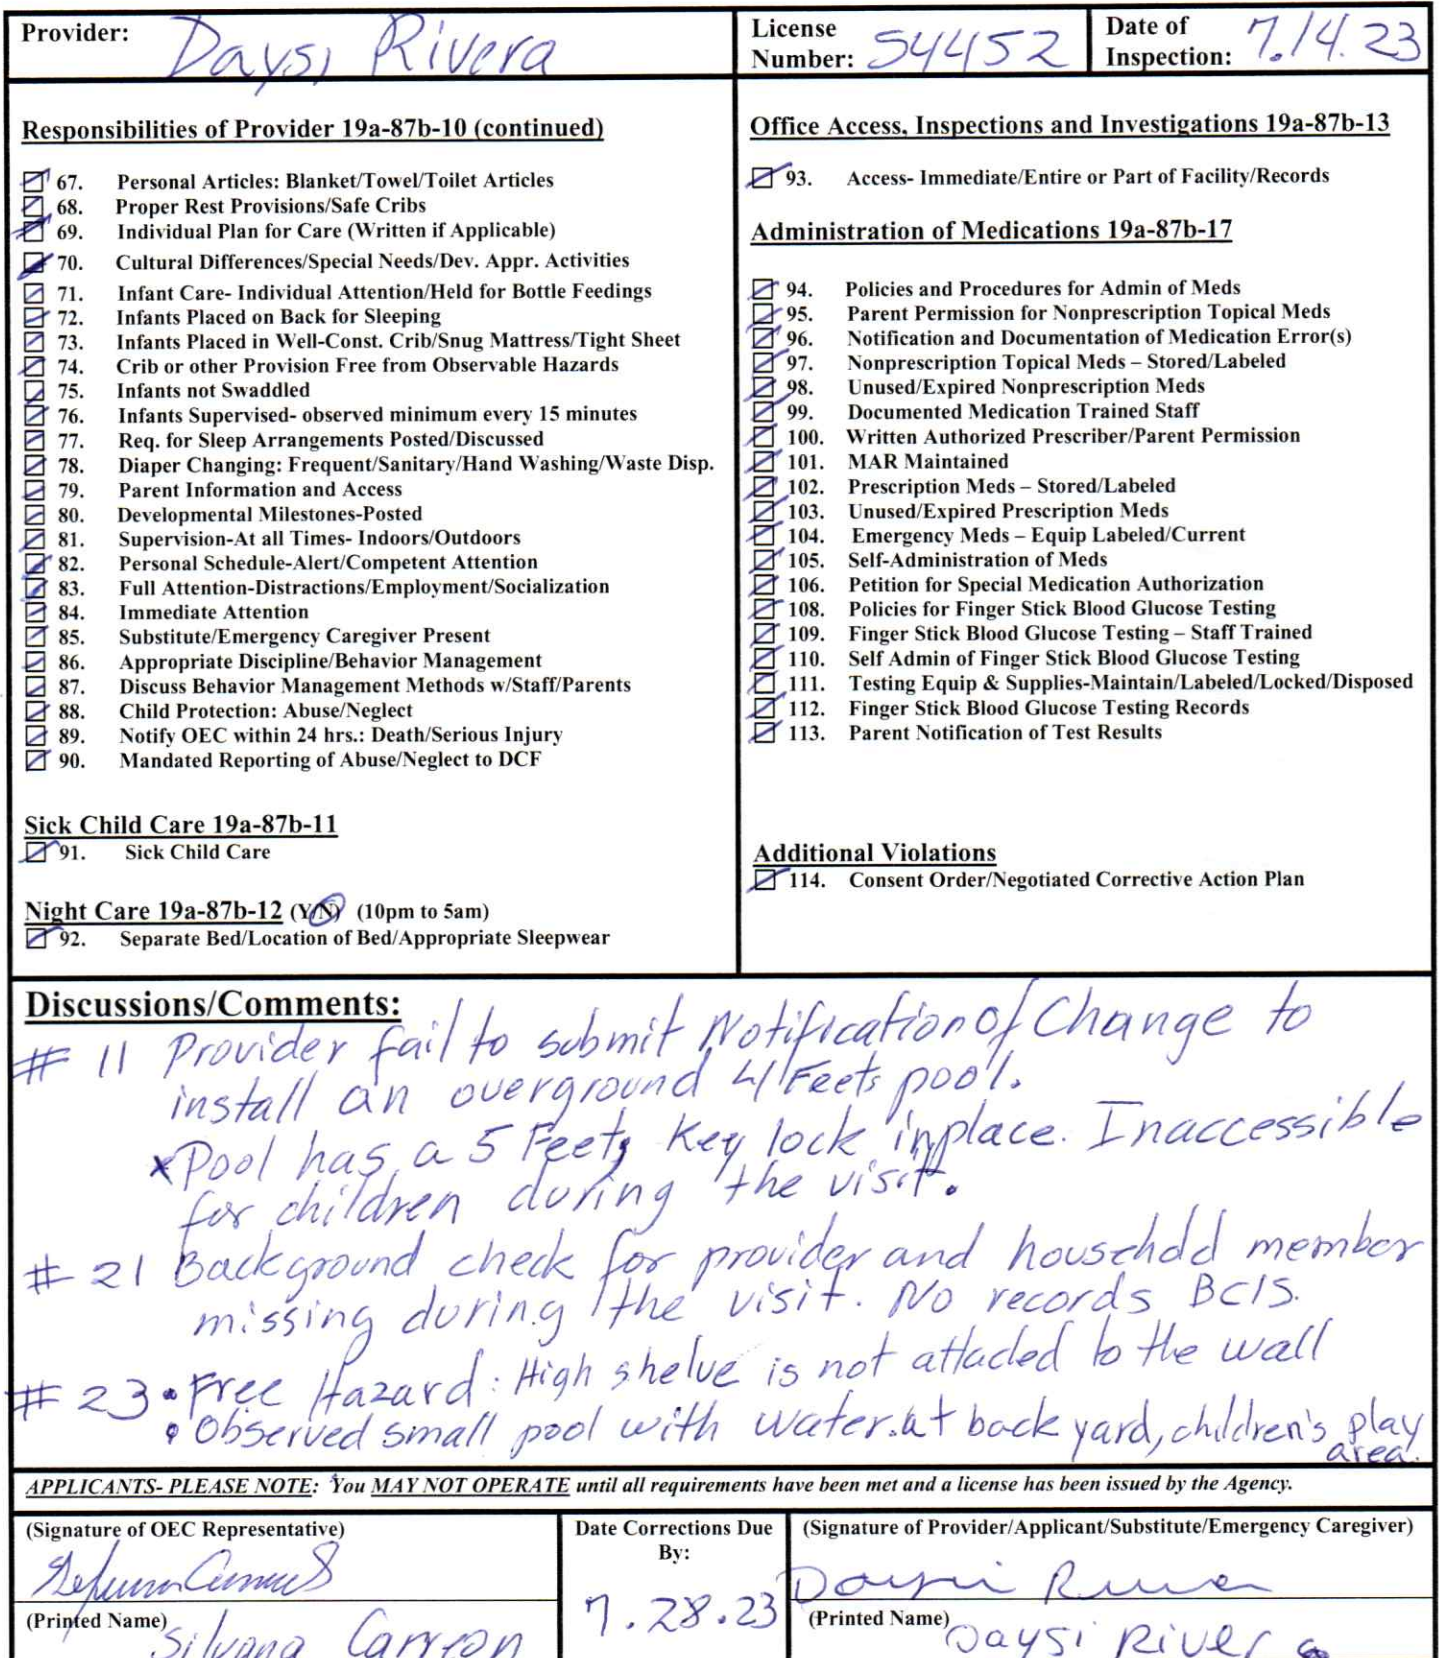 Provider: Daysi Rivera
License Number: 54452
Date of Inspection: 7.14.23
Responsibilities of Provider 19a-87b-10 (continued)
67. Personal Articles: Blanket/Towel/Toilet Articles
68. Proper Rest Provisions/Safe Cribs
69. Individual Plan for Care (Written if Applicable)
70. Cultural Differences/Special Needs/Dev. Appr. Activities
71. Infant Care- Individual Attention/Held for Bottle Feedings
72. Infants Placed on Back for Sleeping
73. Infants Placed in Well-Const. Crib/Snug Mattress/Tight Sheet
74. Crib or other Provision Free from Observable Hazards
75. Infants not Swaddled
76. Infants Supervised- observed minimum every 15 minutes
77. Req. for Sleep Arrangements Posted/Discussed
78. Diaper Changing: Frequent/Sanitary/Hand Washing/Waste Disp.
79. Parent Information and Access
80. Developmental Milestones-Posted
81. Supervision-At all Times- Indoors/Outdoors
82. Personal Schedule-Alert/Competent Attention
83. Full Attention-Distractions/Employment/Socialization
84. Immediate Attention
85. Substitute/Emergency Caregiver Present
86. Appropriate Discipline/Behavior Management
87. Discuss Behavior Management Methods w/Staff/Parents
88. Child Protection: Abuse/Neglect
89. Notify OEC within 24 hrs.: Death/Serious Injury
90. Mandated Reporting of Abuse/Neglect to DCF
Sick Child Care 19a-87b-11
91. Sick Child Care
Night Care 19a-87b-12 (Y/N) (10pm to 5am)
92. Separate Bed/Location of Bed/Appropriate Sleepwear
Office Access, Inspections and Investigations 19a-87b-13
93. Access- Immediate/Entire or Part of Facility/Records
Administration of Medications 19a-87b-17
94. Policies and Procedures for Admin of Meds
95. Parent Permission for Nonprescription Topical Meds
96. Notification and Documentation of Medication Error(s)
97. Nonprescription Topical Meds – Stored/Labeled
98. Unused/Expired Nonprescription Meds
99. Documented Medication Trained Staff
100. Written Authorized Prescriber/Parent Permission
101. MAR Maintained
102. Prescription Meds – Stored/Labeled
103. Unused/Expired Prescription Meds
104. Emergency Meds – Equip Labeled/Current
105. Self-Administration of Meds
106. Petition for Special Medication Authorization
108. Policies for Finger Stick Blood Glucose Testing
109. Finger Stick Blood Glucose Testing – Staff Trained
110. Self Admin of Finger Stick Blood Glucose Testing
111. Testing Equip & Supplies-Maintain/Labeled/Locked/Disposed
112. Finger Stick Blood Glucose Testing Records
113. Parent Notification of Test Results
Additional Violations
114. Consent Order/Negotiated Corrective Action Plan
Discussions/Comments:
# 11 Provider fail to submit Notification of Change to
install an overground 4 Feets pool.
*Pool has a 5 Feets Key lock in place. Inaccessible
for children during the visit.
# 21 Background check for provider and household member
missing during the visit. No records BCIS.
# 23 • Free Hazard: High shelve is not attacled to the wall
• Observed small pool with water at back yard, children's play
area.
APPLICANTS- PLEASE NOTE: You MAY NOT OPERATE until all requirements have been met and a license has been issued by the Agency.
(Signature of OEC Representative)
(Printed Name) Silvana Carreon
Date Corrections Due
By:
7.28.23
(Signature of Provider/Applicant/Substitute/Emergency Caregiver)
Daysi Rivera
(Printed Name) Daysi Rivera